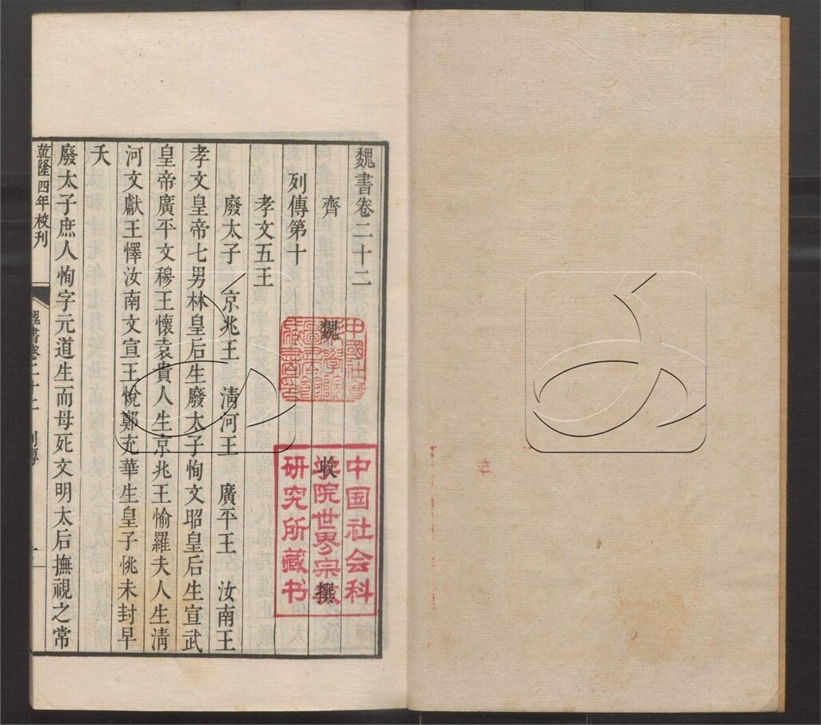 魏書卷二十二
齊 魏 收 撰
列傳第十
孝文五王
廢太子 京兆王 清河王 廣平王 汝南王
孝文皇帝七男林皇后生廢太子恂文昭皇后生宣武
皇帝廣平文穆王懷袁貴人生京兆王愉羅夫人生清
河文獻王懌汝南文宣王悅鄭充華生皇子恌未封早
夭
廢太子庶人恂字元道生而母死文明太后撫視之常
乾隆四年校刊
魏書卷二十二 列傳
中国社会科
学院世界宗教
研究所藏书